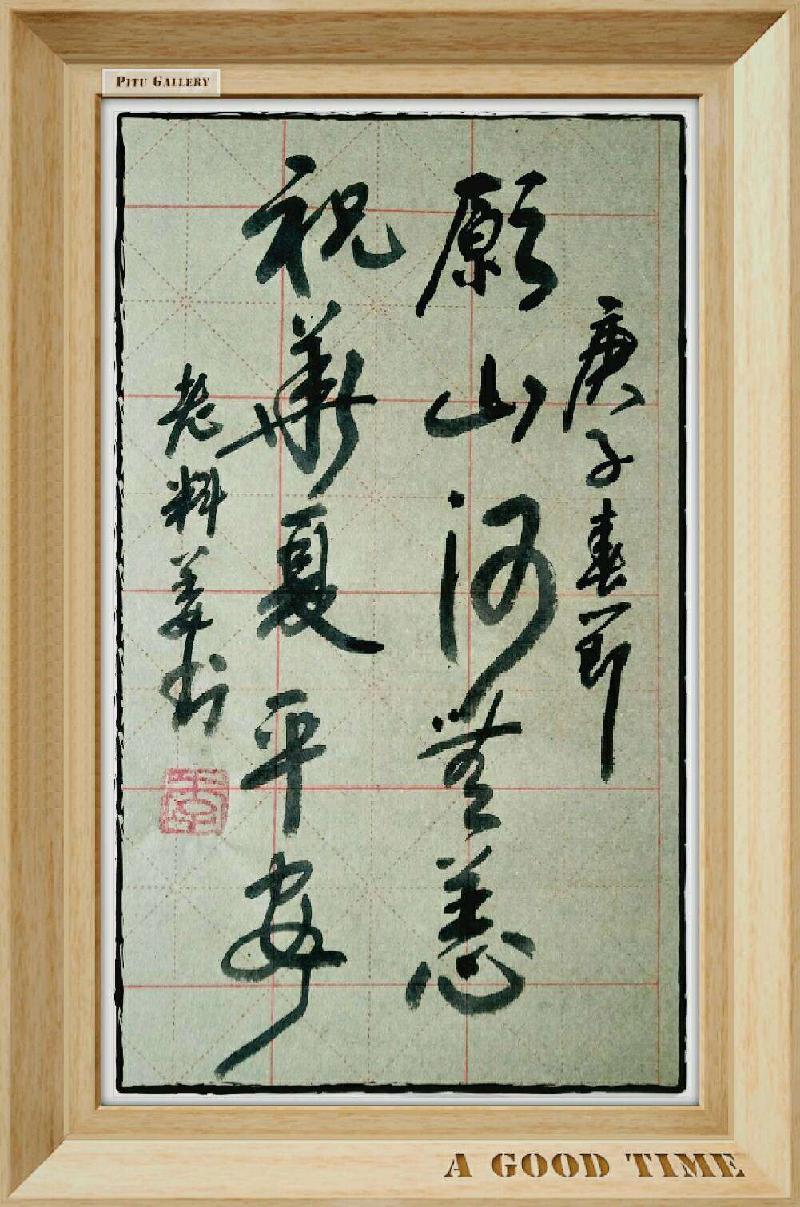 PITU GALLERY
庚子春节
願山河無恙
祝華夏平安
老料姜书
A GOOD TIME